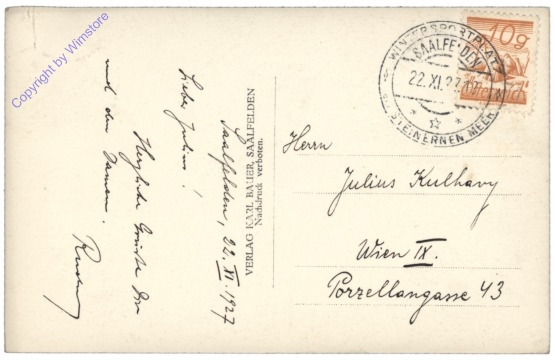 Copyright by Wimstore
Saalfelden, 22. XI. 1927
Liebe Julius!
Herzliche Grüße Dir
und den Damen.
VERLAG KARL BAUER, SAALFELDEN
Nachdruck verboten.
10g
WINTERSPORTPLATZ
SAALFELDEN
22.XI.27
STEINERNEN MEER
Herrn
Julius Kulhavy
Wien IX.
Porzellangasse 43